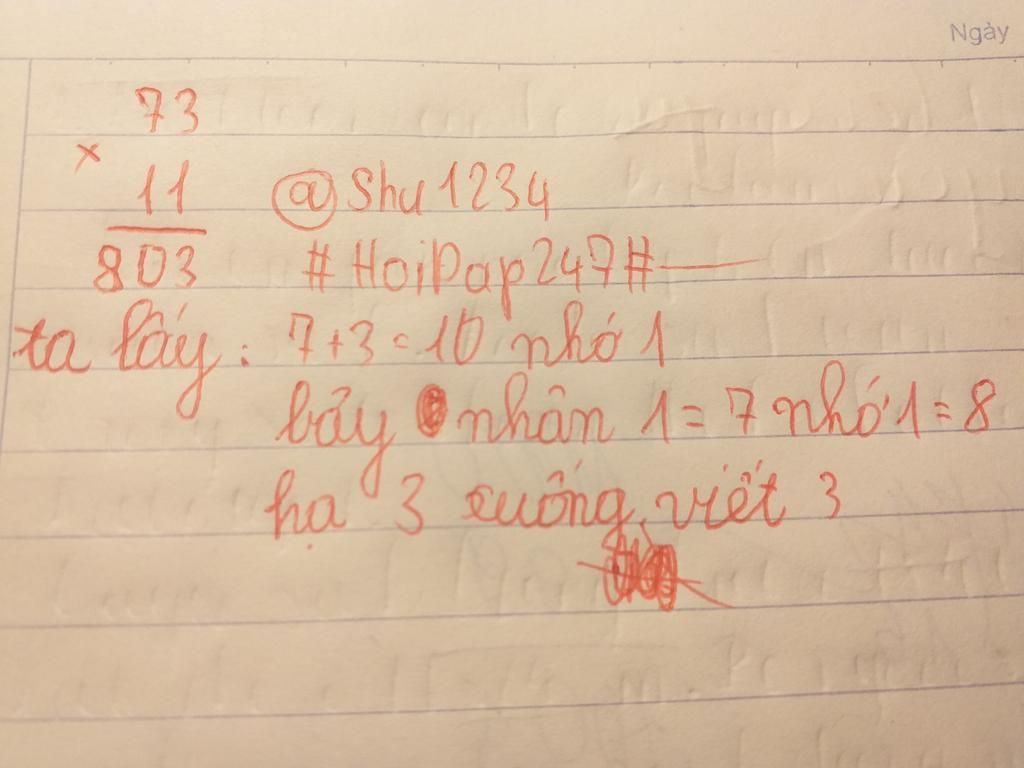 Ngày
73
×
11 @Shu1234
803 #HoiDap247#
ta lấy : 7+3=10 nhớ 1
bảy nhân 1=7 nhớ 1=8
hạ 3 xuống, viết 3